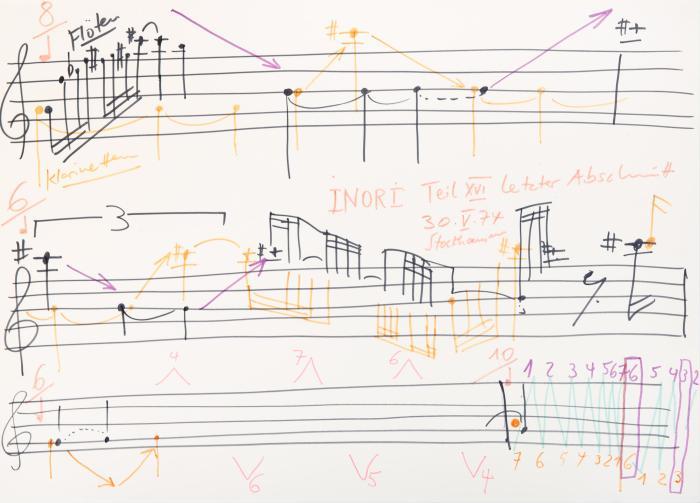 8
Flöten
Klarinetten
6
3
INORI Teil XVI letzter Abschnitt
30.V.74
Stockhausen
4 7 6
6
10
1 2 3 4 5 6 7 6 5 4 3 2
7 6 5 4 3 2 1 6 1 2 3
6 5 4